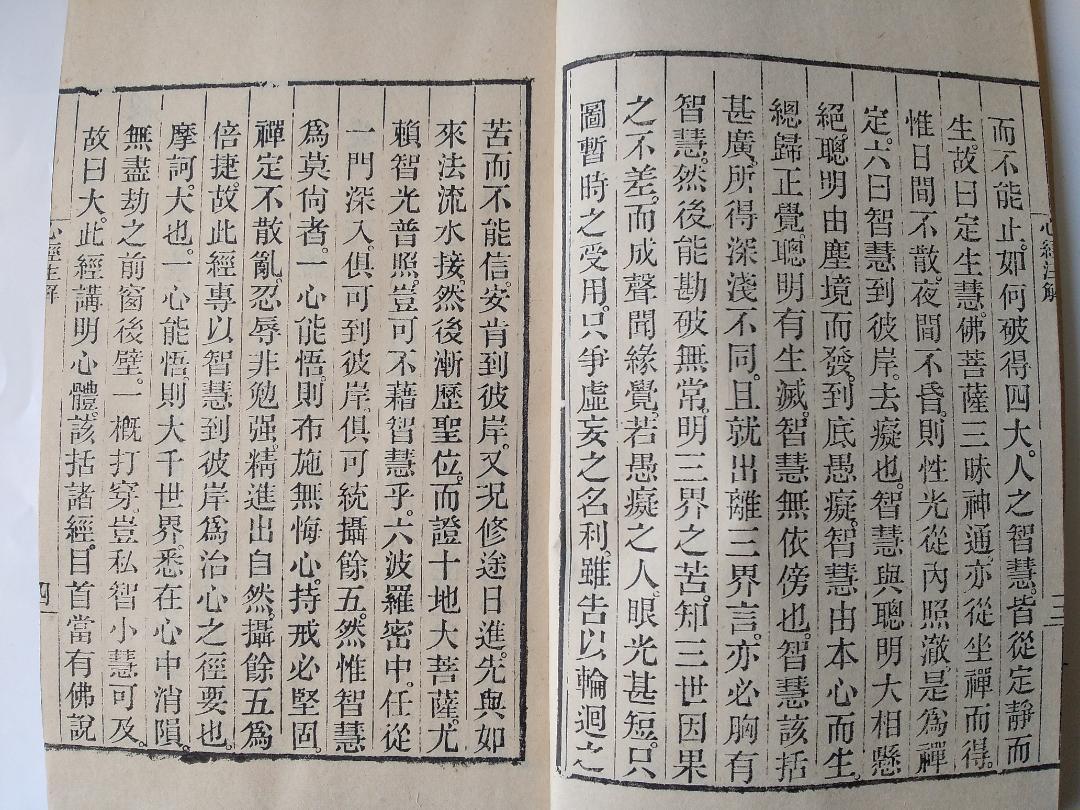 心經註解
三
而不能止。如何破得四大。人之智慧。皆從定靜而
生。故曰定生慧。佛菩薩三昧神通。亦從坐禪而得。
惟日間不散。夜間不昏。則性光從內照澈。是為禪
定。六曰智慧到彼岸。去癡也。智慧與聰明大相懸
絕。聰明由塵境而發。到底愚癡。智慧由本心而生。
總歸正覺。聰明有生滅。智慧無依傍也。智慧該括
甚廣。所得深淺不同。且就出離三界言。亦必胸有
智慧。然後能勘破無常。明三界之苦。知三世因果
之不差。而成聲聞緣覺。若愚癡之人。眼光甚短。只
圖暫時之受用。只爭虛妄之名利。雖告以輪迴之
苦而不能信。安肯到彼岸。又況修途日進。先與如
來法流水接。然後漸歷聖位。而證十地大菩薩。尤
賴智光普照。豈可不藉智慧乎。六波羅密中。任從
一門深入。俱可到彼岸。俱可統攝餘五。然惟智慧
為莫尙者。一心能悟。則布施無悔心。持戒必堅固。
禪定不散亂。忍辱非勉强。精進出自然。攝餘五為
倍捷。故此經專以智慧到彼岸為治心之徑要也。
摩訶。大也。一心能悟。則大千世界。悉在心中消隕。
無盡劫之前窗後壁。一概打穿。豈私智小慧可及。
故曰大。此經講明心體。該括諸經。目首當有佛說
心經註解
四